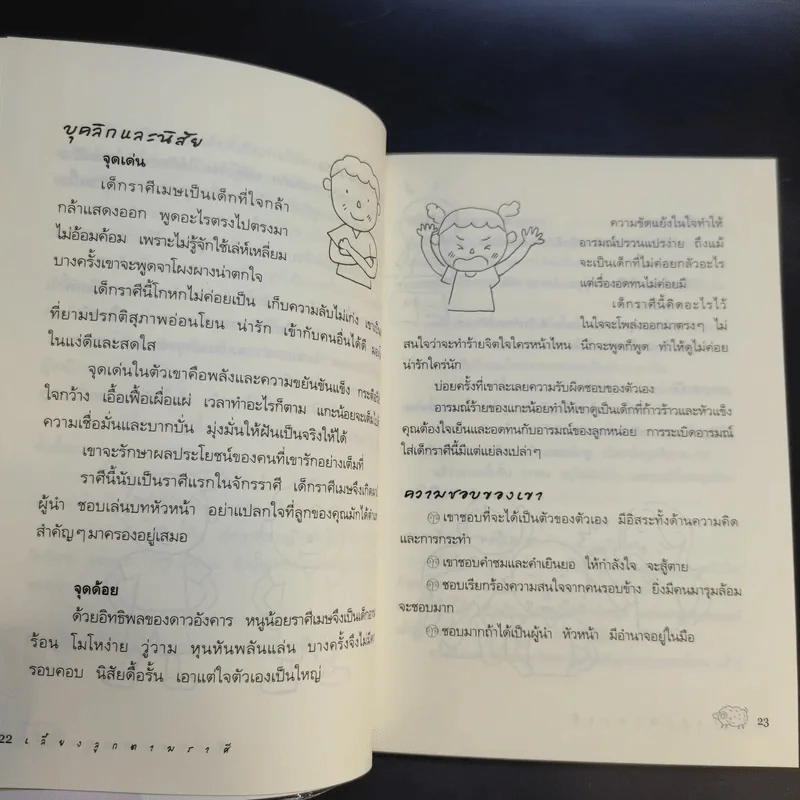 บุคลิกและนิสัย
จุดเด่น
เด็กราศีเมษเป็นเด็กที่ใจกล้า
กล้าแสดงออก พูดอะไรตรงไปตรงมา
ไม่อ้อมค้อม เพราะไม่รู้จักใช้เล่ห์เหลี่ยม
บางครั้งเขาจะพูดจาโผงผางน่าตกใจ
เด็กราศีนี้โกหกไม่ค่อยเป็น เก็บความลับไม่เก่ง
ที่ยามปรกติสุภาพอ่อนโยน น่ารัก เข้ากับคนอื่นได้ดี
ในแง่ดีและสดใส
จุดเด่นในตัวเขาคือพลังและความขยันขันแข็ง
ใจกว้าง เอื้อเฟื้อเผื่อแผ่ เวลาทำอะไรก็ตาม แกะน้อยจะเต็มไป
ความเชื่อมั่นและบากบั่น มุ่งมั่นให้ฝันเป็นจริงให้ได้
เขาจะรักษาผลประโยชน์ของคนที่เขารักอย่างเต็มที่
ราศีนี้นับเป็นราศีแรกในจักรราศี เด็กราศีเมษจึงเกิดมา
ผู้นำ ชอบเล่นบทหัวหน้า อย่าแปลกใจที่ลูกของคุณมักได้
สำคัญๆ มาครองอยู่เสมอ
จุดด้อย
ด้วยอิทธิพลของดาวอังคาร หนูน้อยราศีเมษจึงเป็นเด็ก
ร้อน โมโหง่าย วู่วาม หุนหันพลันแล่น บางครั้งจึงไม่
รอบคอบ นิสัยดื้อรั้น เอาแต่ใจตัวเองเป็นใหญ่
22 เลี้ยงลูกตามราศี
ความขัดแย้งในใจทำให้
อารมณ์ปรวนแปรง่าย ถึงแม้
จะเป็นเด็กที่ไม่ค่อยกลัวอะไร
แต่เรื่องอดทนไม่ค่อยมี
เด็กราศีนี้คิดอะไรไว้
ในใจจะโพล่งออกมาตรงๆ ไม่
สนใจว่าจะทำร้ายจิตใจใครหน้าไหน นึกจะพูดก็พูด ทำให้ดูไม่ค่อย
น่ารักใคร่นัก
บ่อยครั้งที่เขาละเลยความรับผิดชอบของตัวเอง
อารมณ์ร้ายของแกะน้อยทำให้เขาดูเป็นเด็กที่ก้าวร้าวและหัวแข็ง
คุณต้องใจเย็นและอดทนกับอารมณ์ของลูกหน่อย การระเบิดอารมณ์
ใส่เด็กราศีนี้มีแต่แย่ลงเปล่าๆ
ความชอบของเขา
เขาชอบที่จะได้เป็นตัวของตัวเอง มีอิสระทั้งด้านความคิด
และการกระทำ
เขาชอบคำชมและคำเยินยอ ให้กำลังใจ จะสู้ตาย
ชอบเรียกร้องความสนใจจากคนรอบข้าง ยิ่งมีคนมารุมล้อม
จะชอบมาก
ชอบมากถ้าได้เป็นผู้นำ หัวหน้า มีอำนาจอยู่ในมือ
23